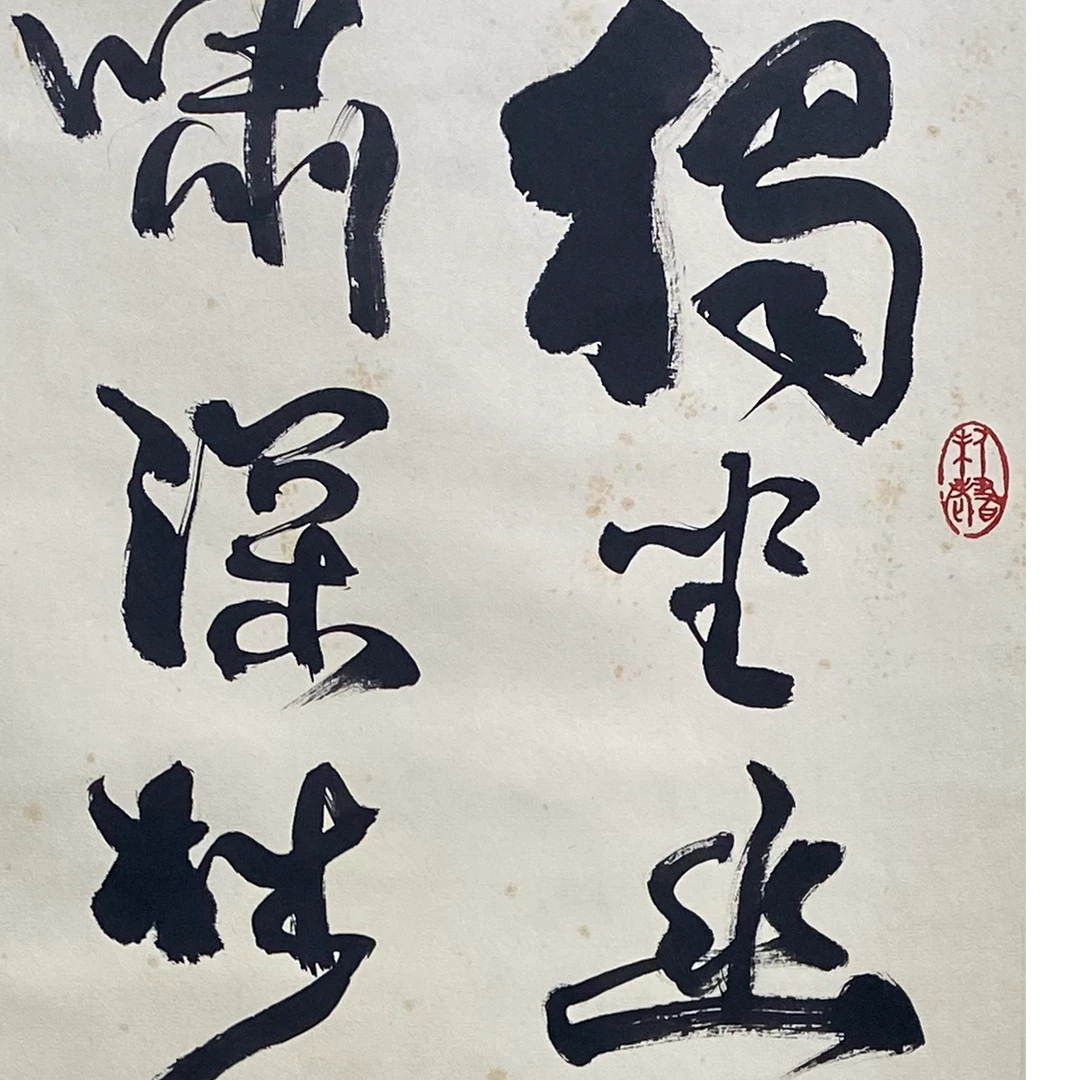 獨坐幽
嘯深林